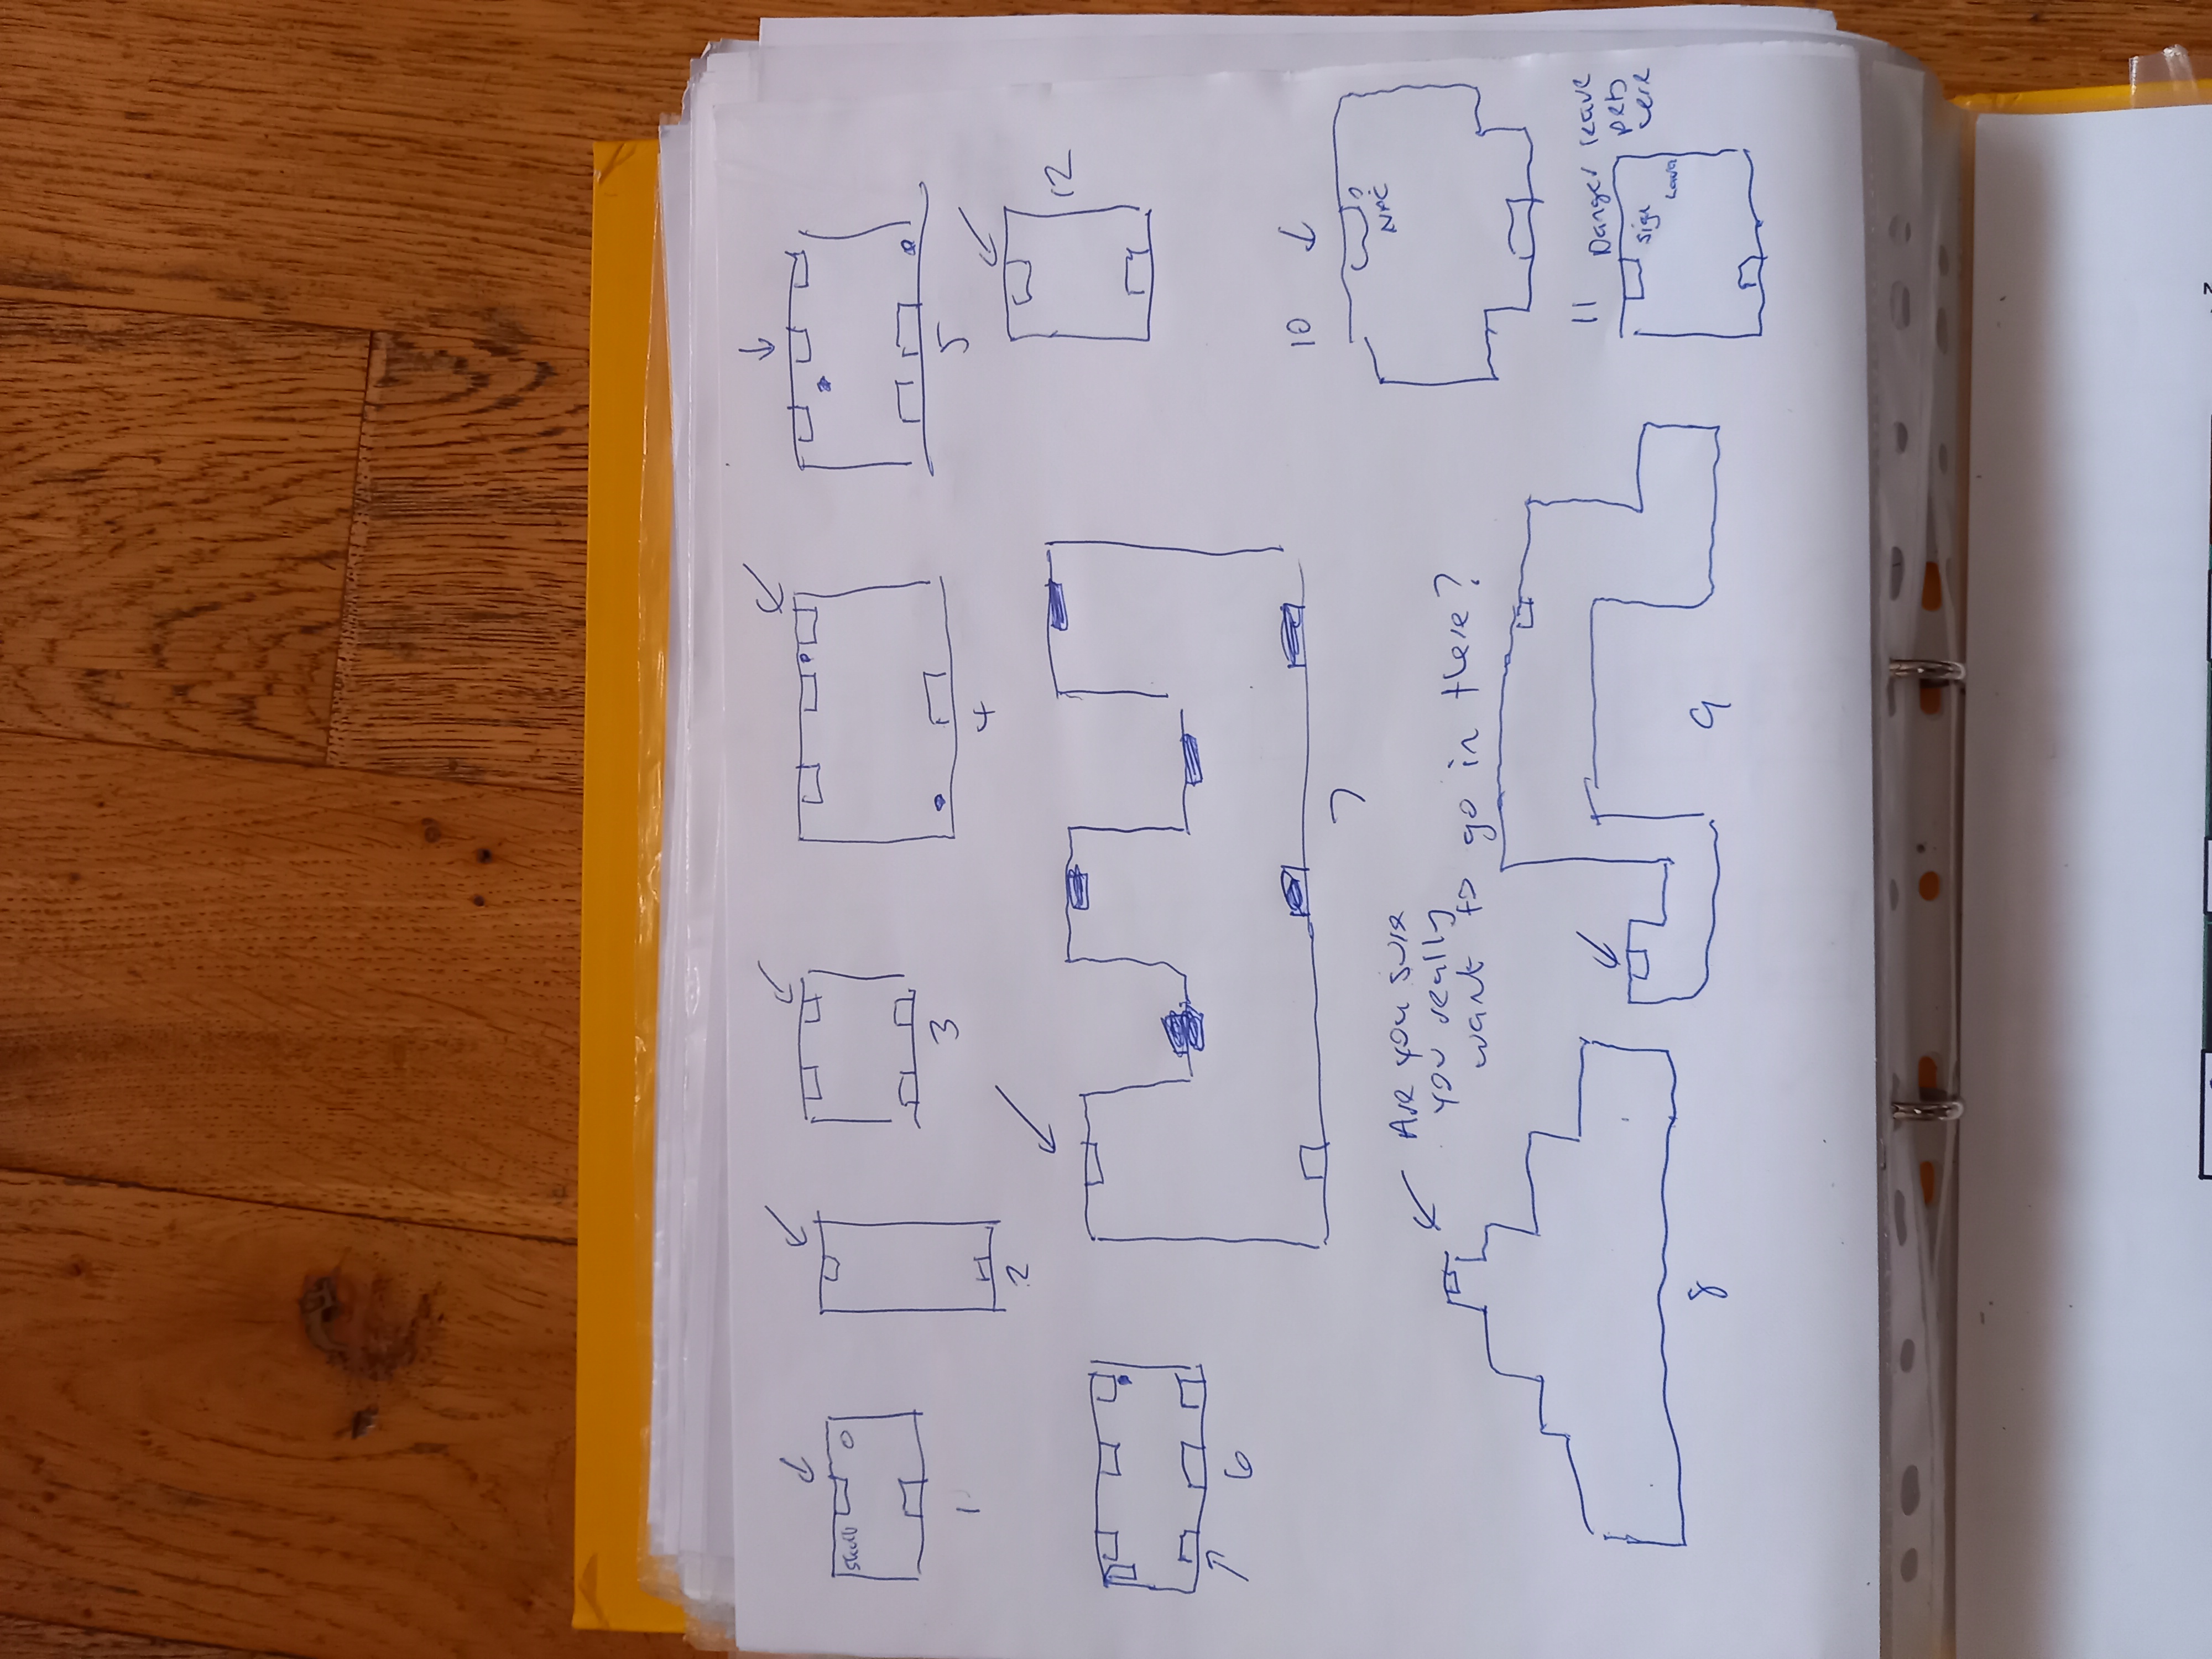 skull
1
2
3
4
5
6
7
12
Are you sure
you really
want to go in there?
8
9
10
NPC?
11
Danger leave
sign
Lava